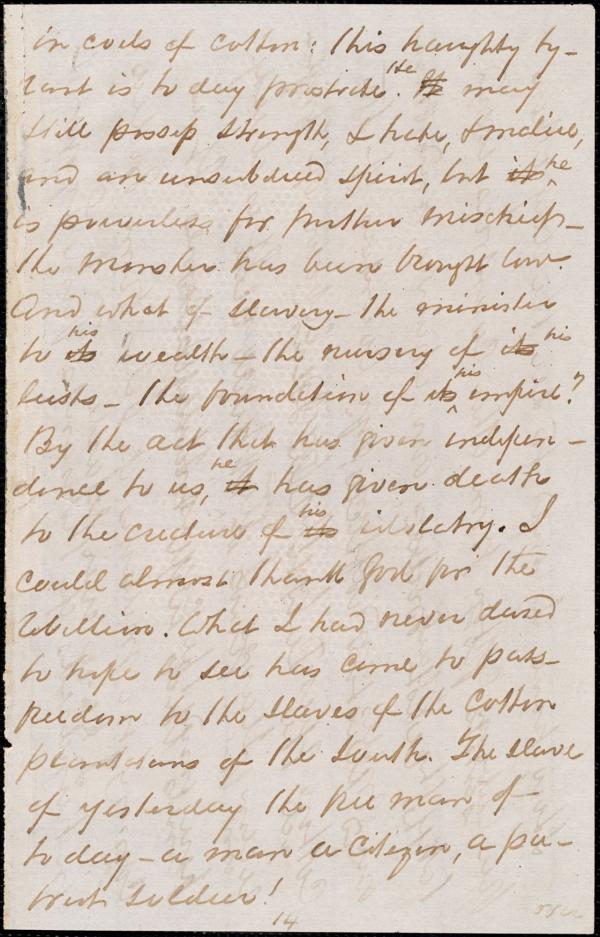 in coils of cotton: this haughty ty-
rant is to day prostrate. It he may
still possess strength, & hate, & malice,
and an unsubdued spirit, but its he
is powerless for further mischief-
the monster has been brought low.
And what of slavery - the minister
to its his wealth - the nursery of its his
lusts - the foundation of its his empire?
By the act that has given indepen-
dence to us, it he has given death
to the creature of its his idolatry. I
could almost thank God for the
rebellion. What I had never dared
to hope to see has come to pass -
freedom to the slaves of the Cotton
plantations of the South. The slave
of yesterday the free man of
to day - a man a citizen, a pa-
triot soldier!
14